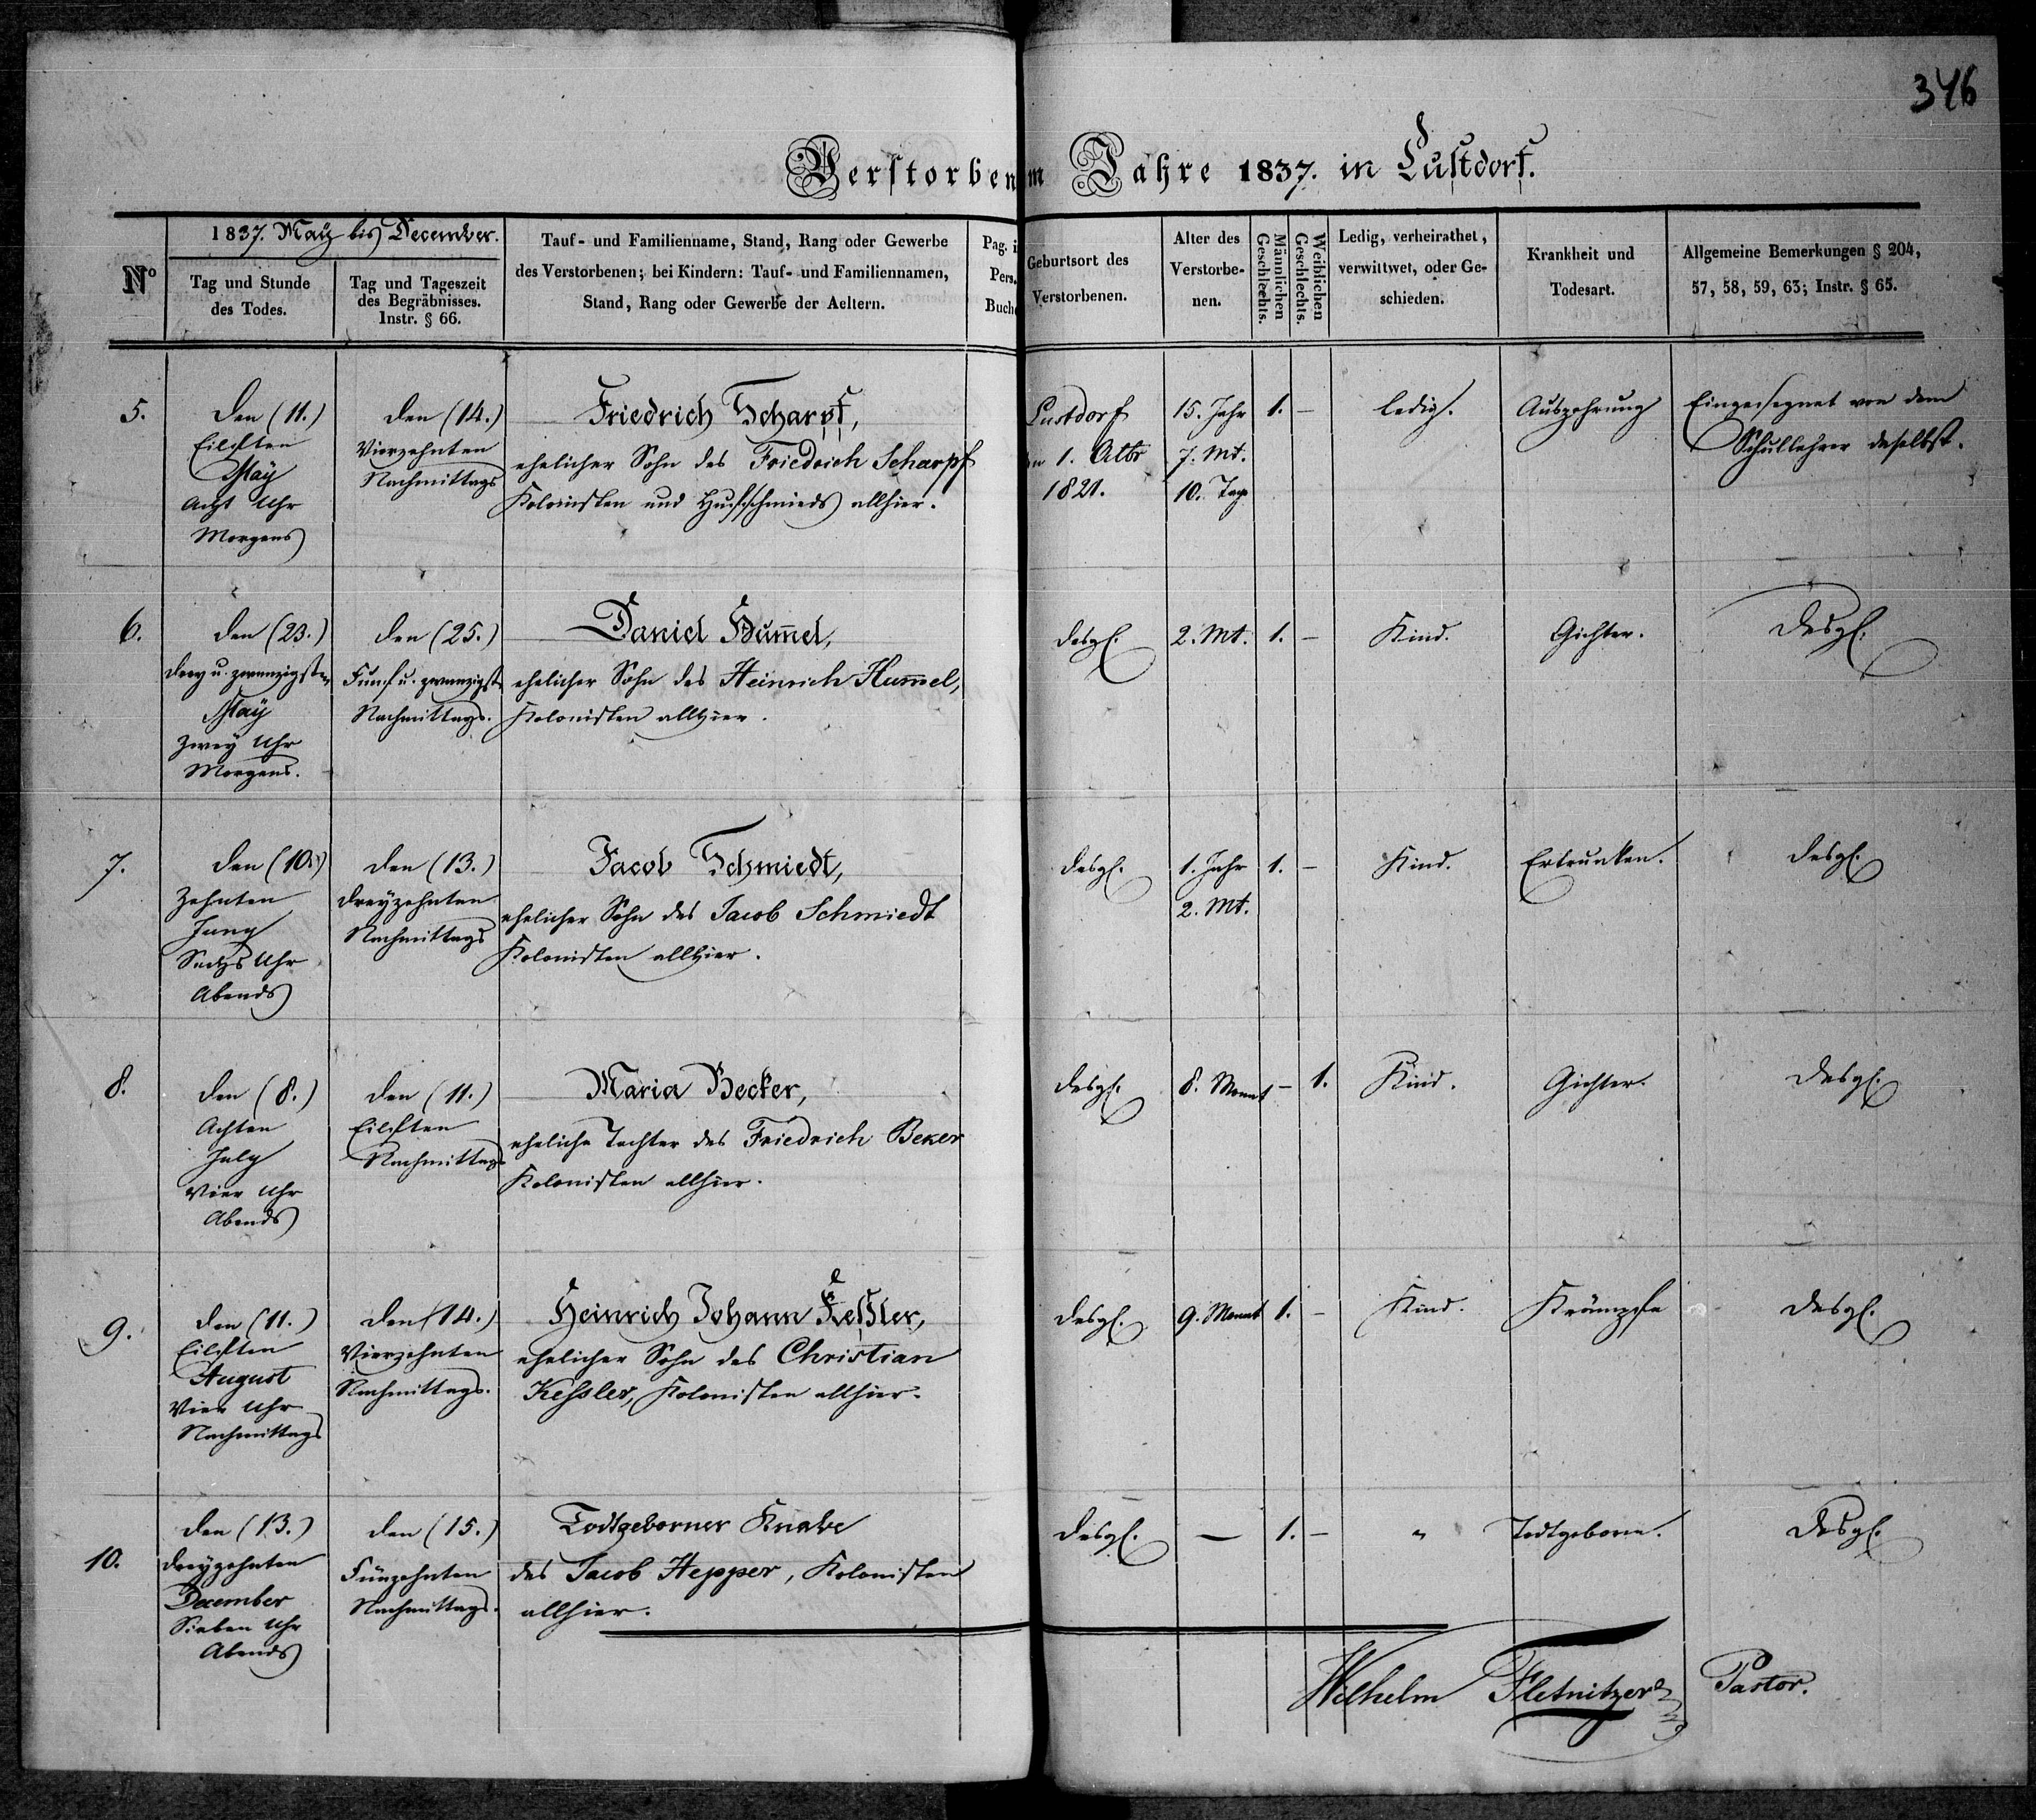 346
Verstorbene im Jahre 1837. in Lustdorf.
1837. Maÿ bis December.
No
Tag und Stunde
des Todes.
Tag und Tageszeit
des Begräbnisses.
Instr. § 66.
Tauf- und Familienname, Stand, Rang oder Gewerbe
des Verstorbenen; bei Kindern: Tauf- und Familiennamen,
Stand, Rang oder Gewerbe der Aeltern.
Pag. i
Pers.
Buch
Geburtsort des
Verstorbenen.
Alter des
Verstorbe-
nen.
Männlichen
Geschlechts.
Weiblichen
Geschlechts.
Ledig, verheirathet,
verwittwet, oder Ge-
schieden.
Krankheit und
Todesart.
Allgemeine Bemerkungen § 204,
57, 58, 59, 63; Instr. § 65.
5.
den (11.)
Eilften
Maÿ
Acht Uhr
Morgens
den (14.)
Vierzehnten
Nachmittags
Friedrich Scharpf,
ehelicher Sohn des Friedrich Scharpf
Kolonisten und Hufschmieds allhier.
Lustdorf
1. Octbr
1821.
15. Jahr
7. Mt.
10. Tage
1.
–
ledig.
Auszehrung
Eingesegnet von dem
Schullehrer daselbst.
6.
den (23.)
drey u. zwanzigsten
Maÿ
zweÿ Uhr
Morgens.
den (25.)
Fünf u. zwanzigst
Nachmittags.
Daniel Hum̅el,
ehelicher Sohn des Heinrich Hum̅el,
Kolonisten allhier.
desgl.
2. Mt.
1.
–
Kind.
Gichter.
desgl.
7.
den (10.)
Zehnten
Juny
Sechs Uhr
Abends
den (13.)
dreyzehnten
Nachmittags
Jacob Schmiedt,
ehelicher Sohn des Jacob Schmiedt
Kolonisten allhier.
desgl.
1. Jahr
2. Mt.
1.
–
Kind.
Ertrunken.
desgl.
8.
den (8.)
Achten
July
Vier Uhr
Abends
den (11.)
Eilften
Nachmittags
Maria Becker,
eheliche Tochter des Friedrich Beker
Kolonisten allhier.
desgl.
8. Monat
–
1.
Kind.
Gichter.
desgl.
9.
den (11.)
Eilften
August
Vier Uhr
Nachmittags
den (14.)
Vierzehnten
Nachmittags.
Heinrich Johann Keßler,
ehelicher Sohn des Christian
Keßler, Kolonisten allhier.
desgl.
9. Monat
1.
–
Kind.
Krämpfe
desgl.
10.
den (13.)
dreyzehnten
December
Sieben Uhr
Abends
den (15.)
Fünzehnten
Nachmittags.
Todtgeborner Knabe
des Jacob Hepper, Kolonisten
allhier.
desgl.
–
1.
–
"
Todtgeboren.
desgl.
Wilhelm Fletnitzer Pastor.